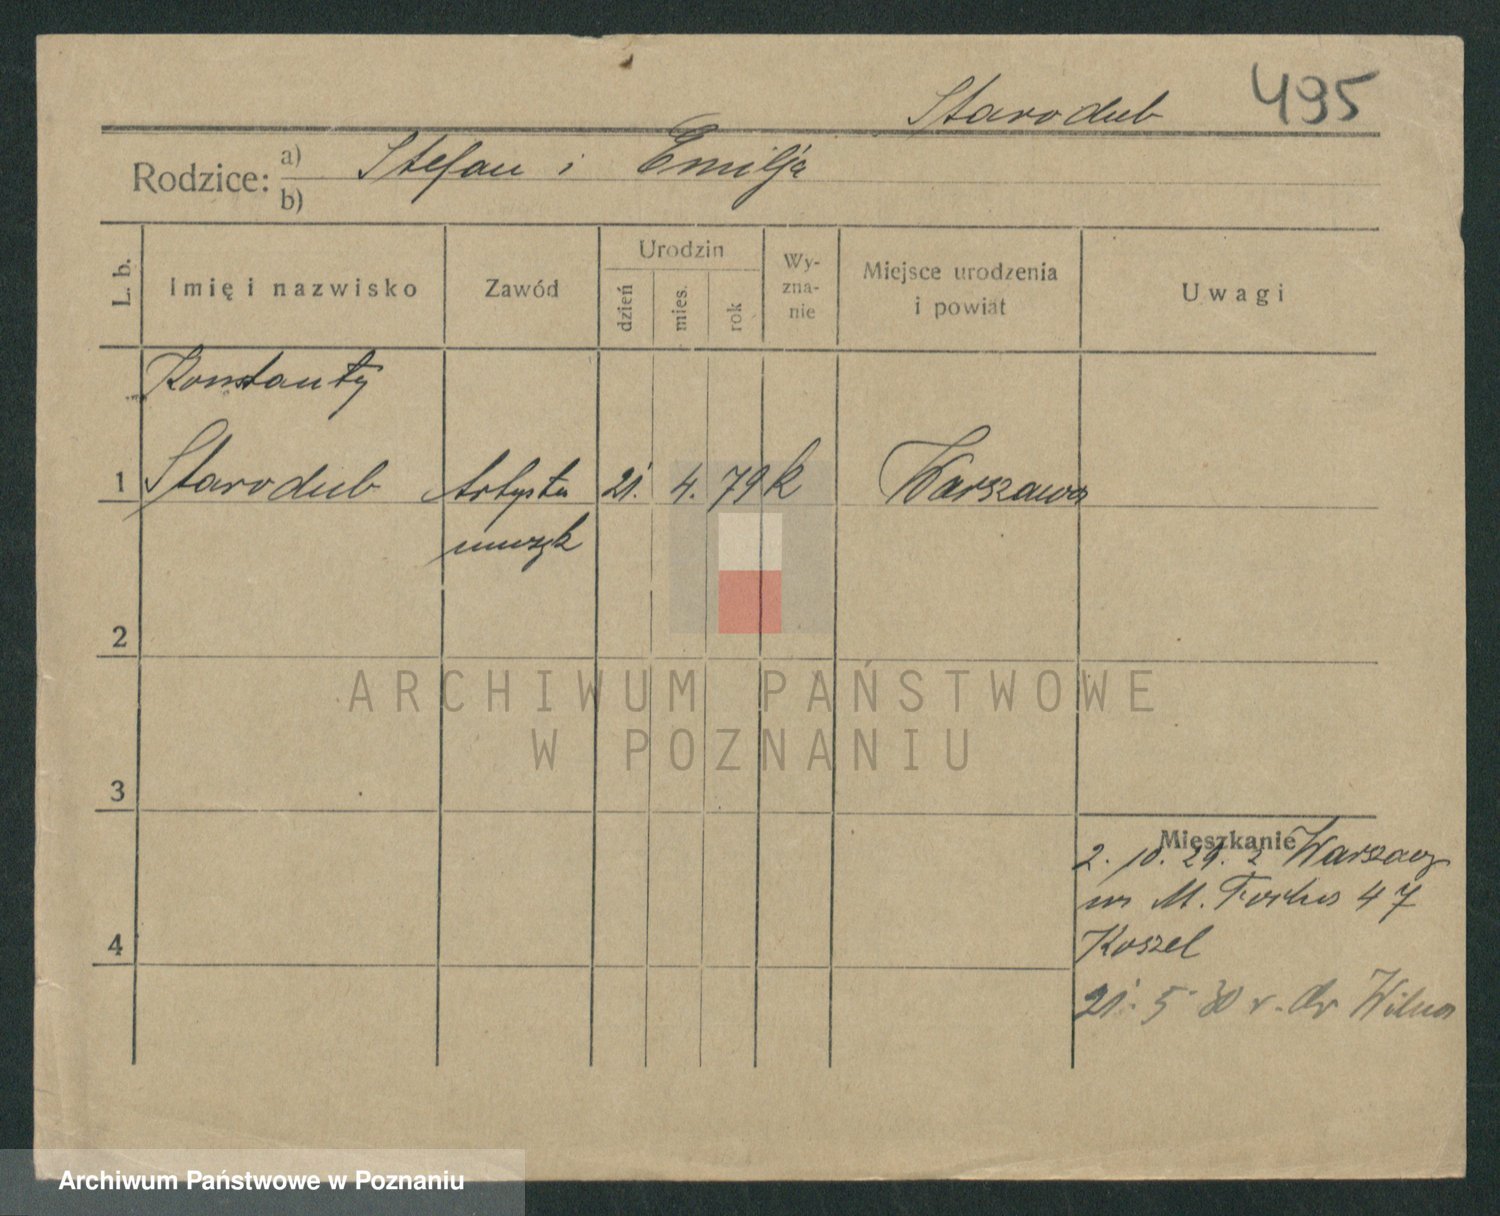 Starodub 495
Rodzice: a) Stefan i Emilja
b)
L. b. Imię i nazwisko Zawód Urodzin dzień mies. rok Wy-zna-nie Miejsce urodzenia i powiat Uwagi
Konstanty
1 Starodub Artysta 21. 4. 79 k Warszawa
muzyk
2
ARCHIWUM PAŃSTWOWE
W POZNANIU
3
Mieszkanie
2. 10. 29. z Warszawy
M. Focha 47
4 Koszel
21. 5. 30 Wilna
Archiwum Państwowe w Poznaniu